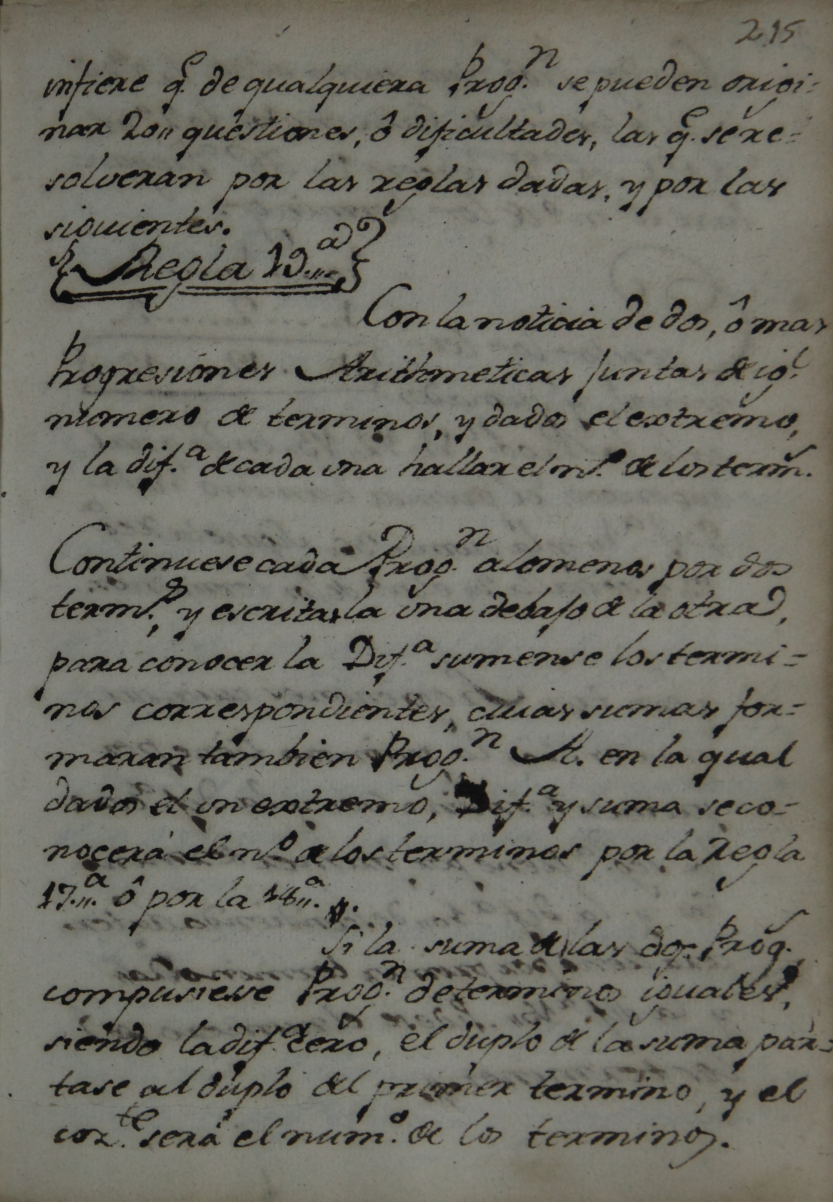 215
infiere q.e de qualquiera Prog.n se pueden origi=
nar 20,, questiones, ô dificultades, las q.e se re=
solveran por las reglas dadas, y por las
siguientes.
Regla 19.,,a
Con la noticia de dos, ô mas
Progresiones Arithmeticas juntas de ig.l
numero de terminos, y dados el extremo,
y la dif.a de cada una hallar el n.o de los term.s
Continuese cada Prog.n alomenos por dos
term.s, y escritas la una debajo de la otra,
para conocer la Dif.a sumense los termi=
nos correspondientes, cuias sumas for=
maran tambien Prog.n A. en la qual
dados el un extremo, Dif.a y suma se co=
nocerá el n.o de los terminos por la Regla
17.,,a ô por la 18,,a.
Si la suma de las dos Prog.s
compusiese Prog.n de terminos iguales,
siendo la dif.a cero, el duplo de la suma par=
tase al duplo del primer termino, y el
coz.te será el num.o de los terminos.